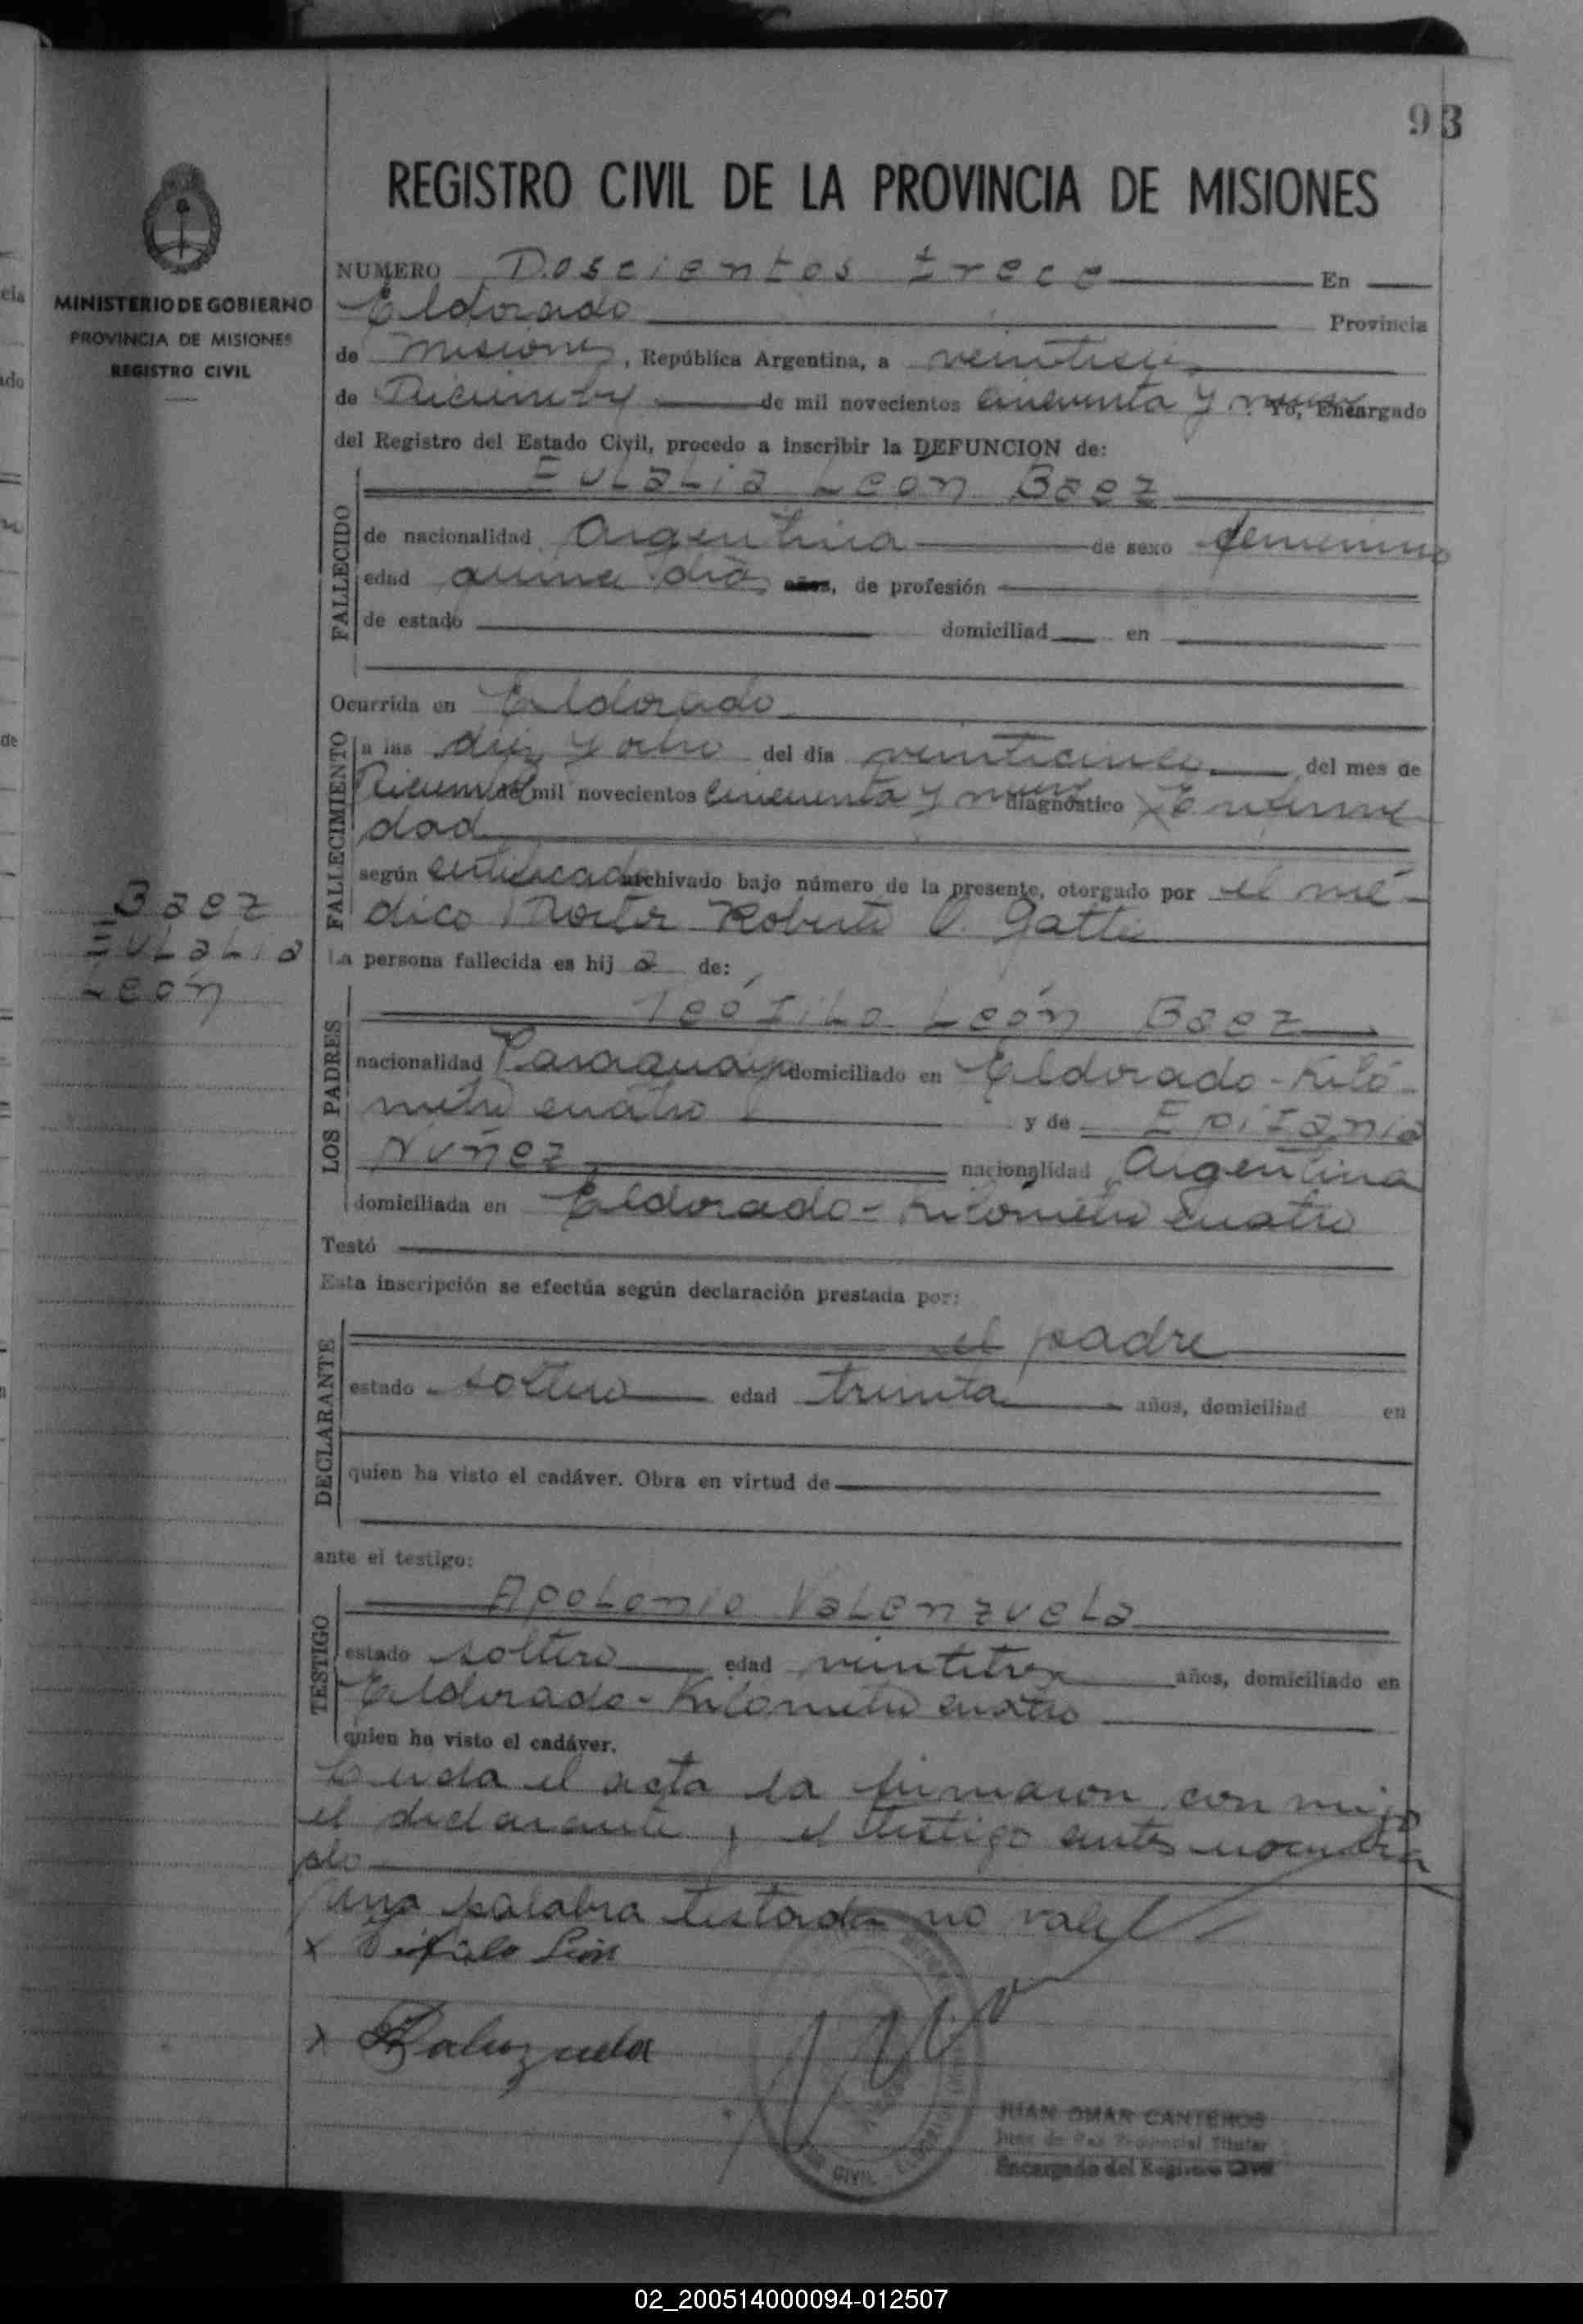 93
REGISTRO CIVIL DE LA PROVINCIA DE MISIONES
MINISTERIO DE GOBIERNO
PROVINCIA DE MISIONES
REGISTRO CIVIL
NUMERO Doscientos trece En
Eldorado Provincia
de Misiones, República Argentina, a veintiseis
de Diciembre de mil novecientos cincuenta y nueve Yo, Encargado
del Registro del Estado Civil, procedo a inscribir la DEFUNCION de:
Eulalia Leon Baez
FALLECIDO
de nacionalidad Argentina de sexo femenino
edad quince dias años, de profesión
de estado domiciliad en
Ocurrida en Eldorado
FALLECIMIENTO
a las diez y ocho del día veinticinco del mes de
Diciembre de mil novecientos cincuenta y nueve diagnóstico Enferme
dad
según certificado archivado bajo número de la presente, otorgado por el mé-
dico Doctor Roberto O. Gatti
Baez
Eulalia
León
La persona fallecida es hij a de:
LOS PADRES
Teófilo León Baez
nacionalidad Paraguaya domiciliado en Eldorado-Kiló-
metro cuatro y de Epifania
Nuñez nacionalidad Argentina
domiciliada en Eldorado-Kilómetro cuatro
Testó
Esta inscripción se efectúa según declaración prestada por:
DECLARANTE
el padre
estado soltero edad treinta años, domiciliad en
quien ha visto el cadáver. Obra en virtud de
ante el testigo:
TESTIGO
Apolonio Valenzuela
estado soltero edad veintitres años, domiciliado en
Eldorado-Kilometro cuatro
quien ha visto el cadáver.
Leida el acta la firmaron con migo
el declarante y el testigo antes nombra
do
Una palabra testada no vale
x Teofilo León
x Balenzuela
CIVIL
JUAN OMAR CANTEROS
Juez de Paz Provincial Titular
Encargado del Registro Civil
02_200514000094-012507